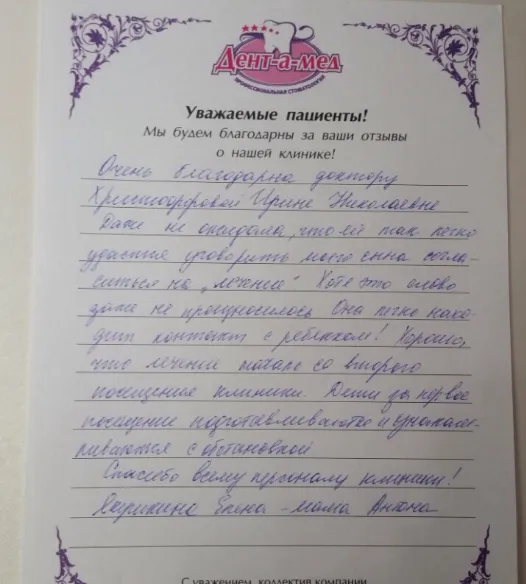 Дент-а-мед
ПРОФЕССИОНАЛЬНАЯ СТОМАТОЛОГИЯ
Уважаемые пациенты!
Мы будем благодарны за ваши отзывы
о нашей клинике!
Очень благодарна доктору
Христофоровой Ирине Николаевне
Даже не ожидала, что ей так легко
удастся уговорить моего сына согла-
ситься на "лечение" Хотя это слово
даже не произносилось Она легко нахо-
дит контакт с ребёнком! Хорошо,
что лечение начали со второго
посещения клиники. Дети за первое
посещение подготавливаются и
риваются с обстановкой
Спасибо всему персоналу клиники!
Елена - мама Антона
С уважением, коллектив компании